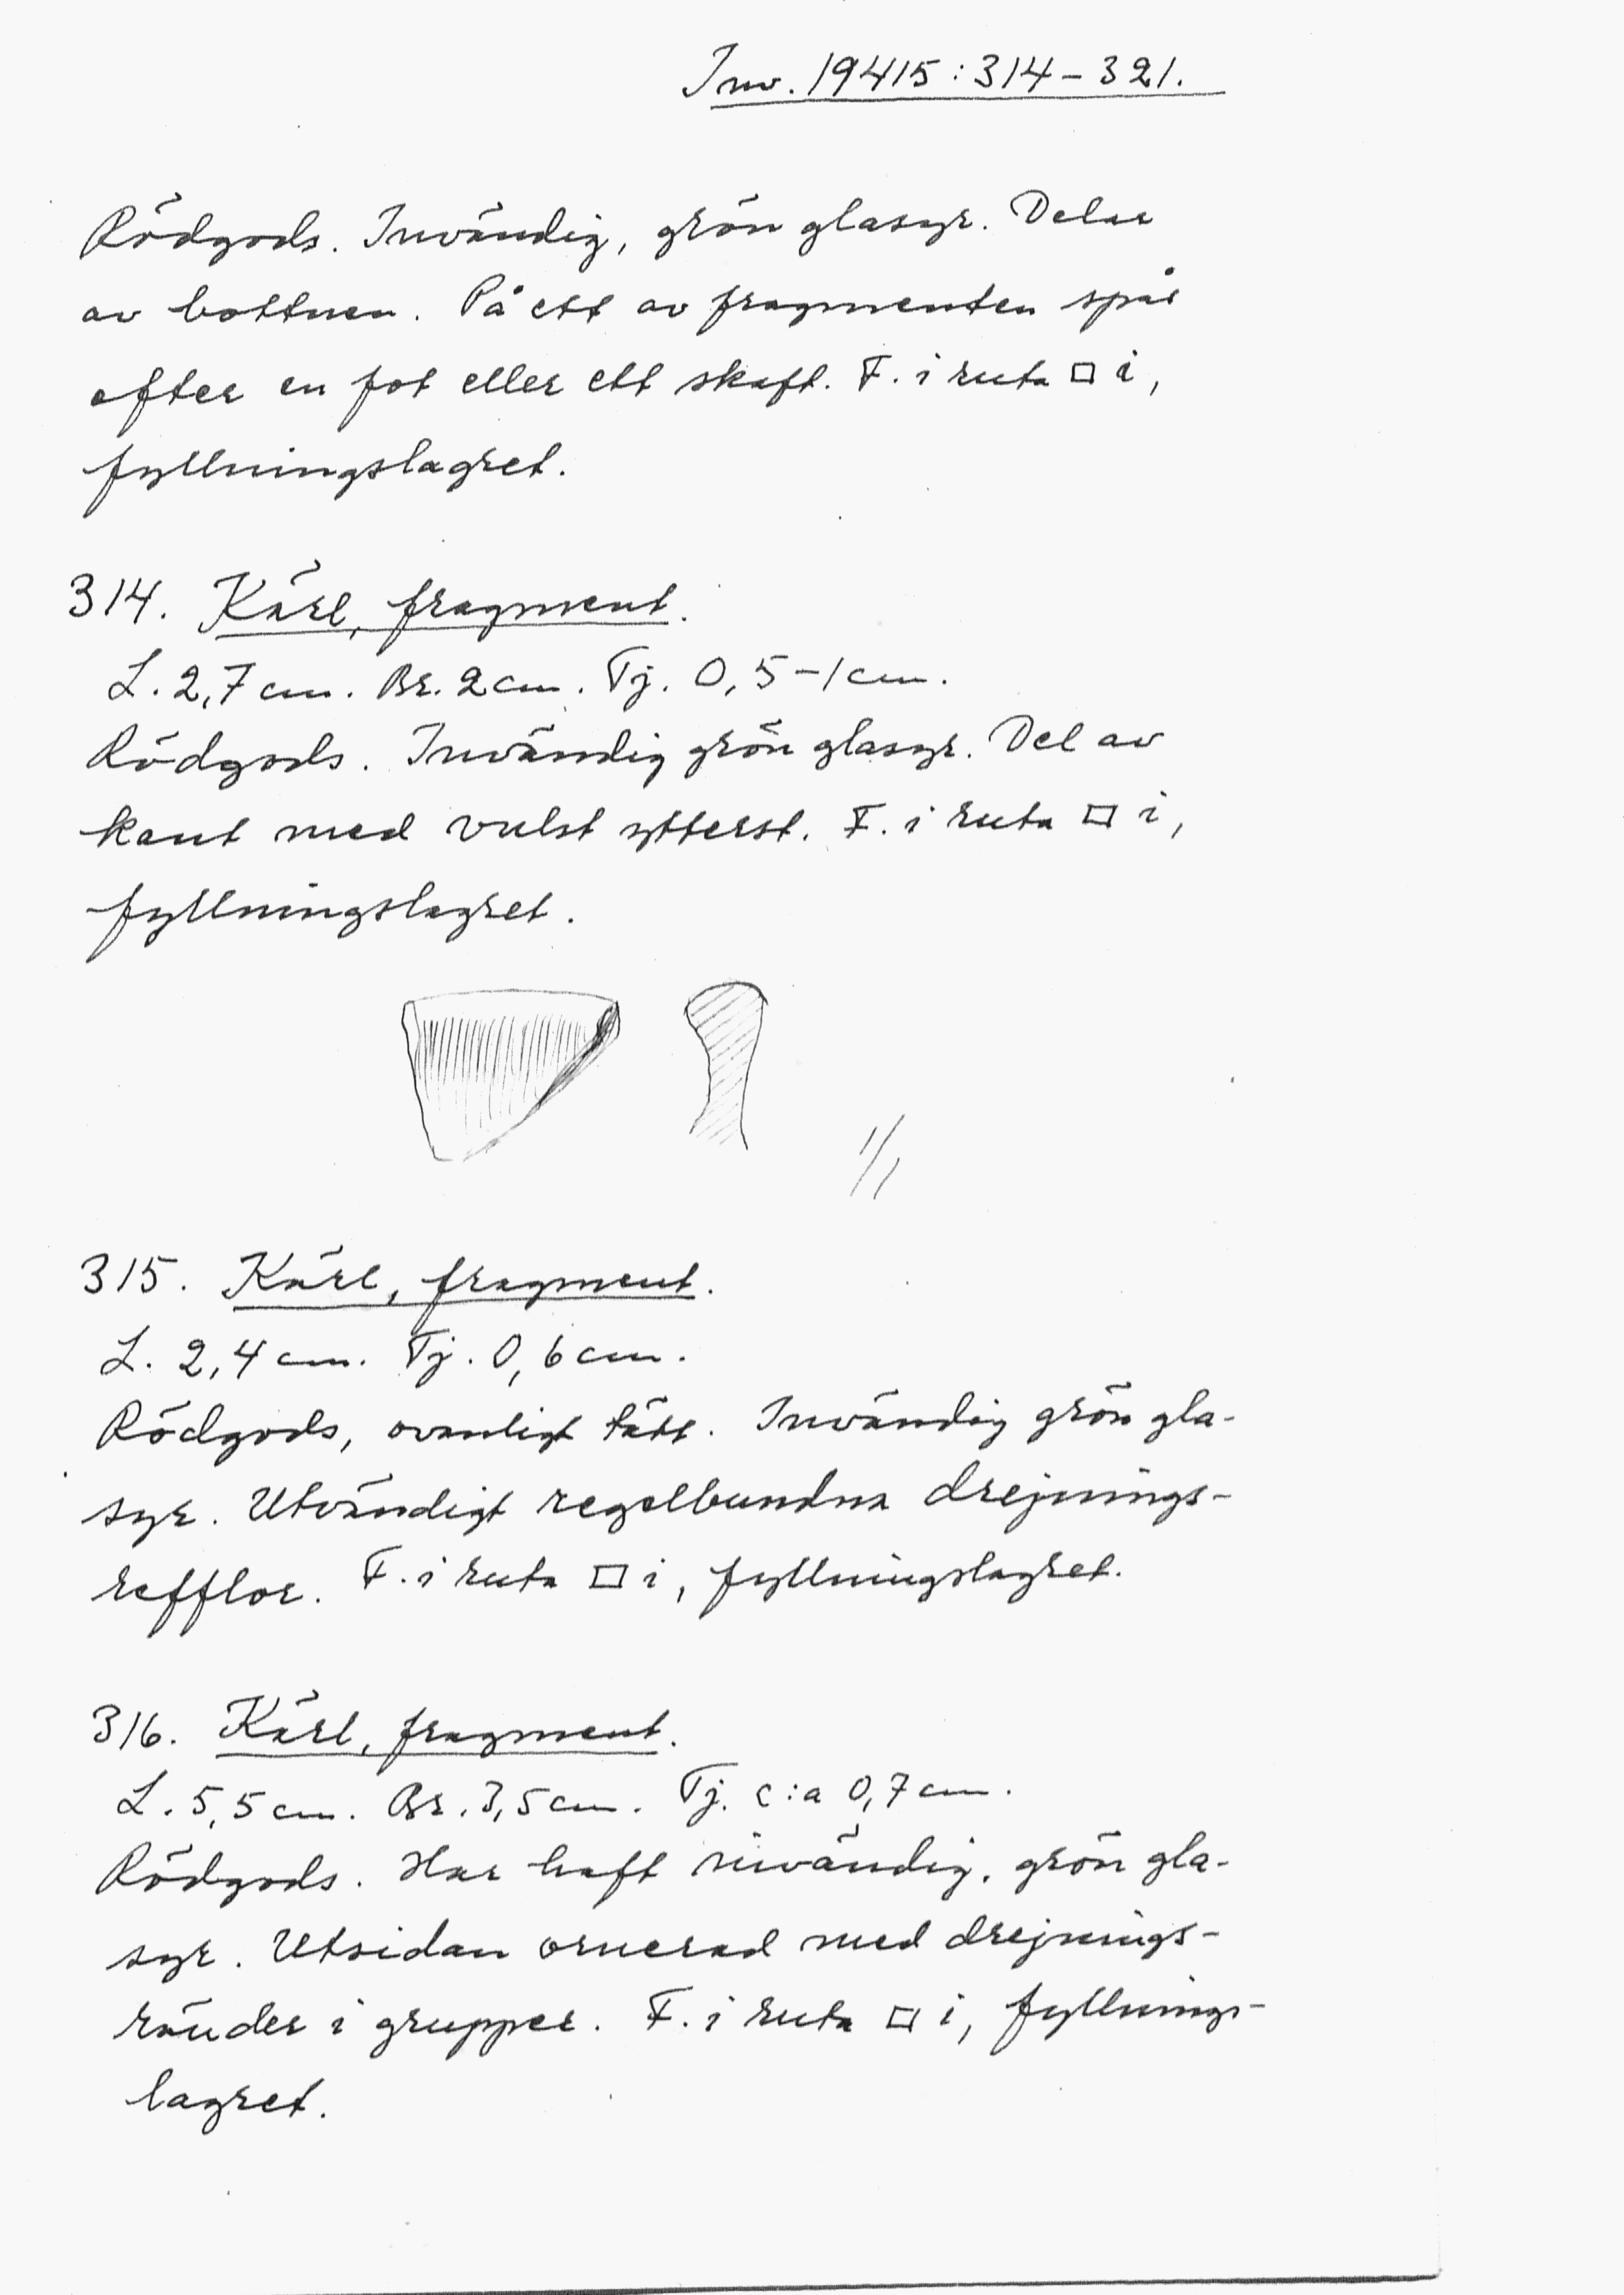 Inv. 19415:314–321.
Rödgods. Invändig, grön glasyr. Delar
av bottnen. På ett av fragmenten spår
efter en fot eller ett skaft. F. i ruta □ i,
fyllningslagret.
314. Kärl, fragment.
L. 2,7 cm. Br. 2 cm. Tj. 0,5–1 cm.
Rödgods. Invändig grön glasyr. Del av
kant med vulst ytterst. F. i ruta □ i,
fyllningslagret.
1/1
315. Kärl, fragment.
L. 2,4 cm. Tj. 0,6 cm.
Rödgods, ovanligt tätt. Invändig grön gla-
syr. Utvändigt regelbundna drejnings-
refflor. F. i ruta □ i, fyllningslagret.
316. Kärl, fragment.
L. 5,5 cm. Br. 3,5 cm. Tj. c:a 0,7 cm.
Rödgods. Har haft invändig, grön gla-
syr. Utsidan ornerad med drejnings-
ränder i grupper. F. i ruta □ i, fyllnings-
lagret.